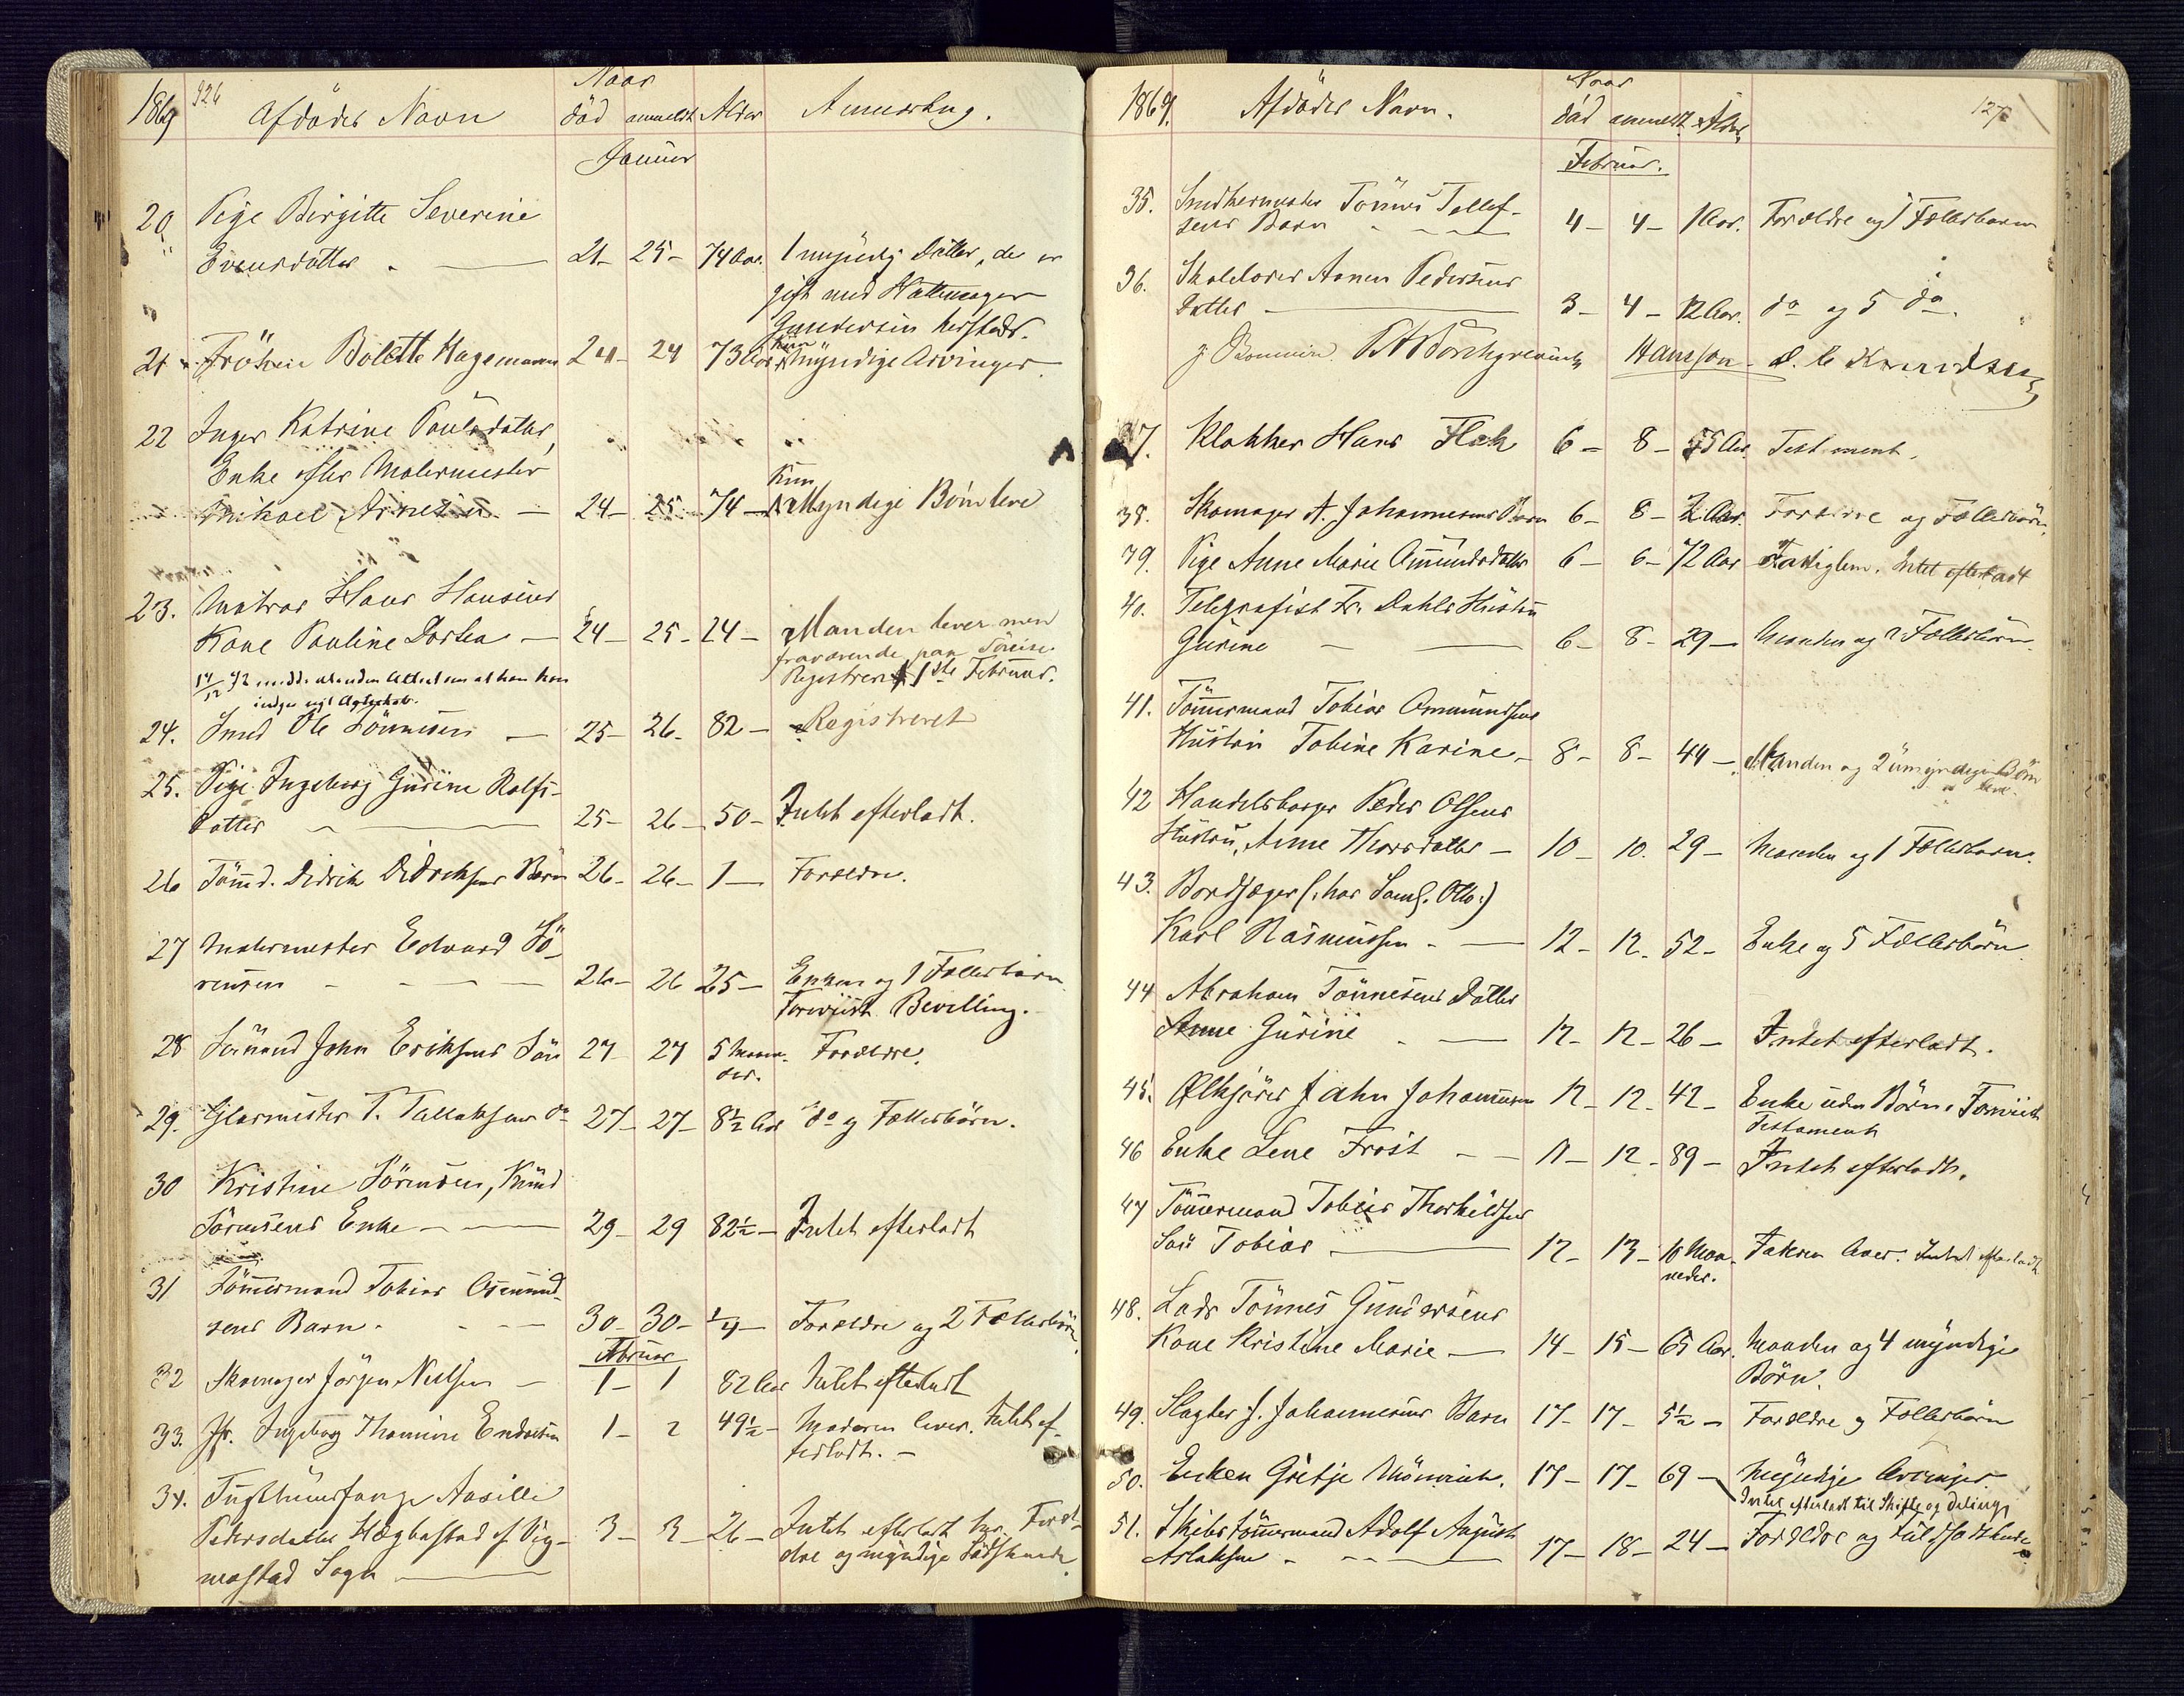 1869 126 Afdødes Navn Naar død anmeldt Alder Anmærkng.
Januar
20. Pige Birgitte Severine
Evensdatter 21- 25- 74 Aar. 1 myndig Datter, der er
gift med Hattemager
Gundersen herstads.
21 Frøken Bolette Hagemann 24- 24 73 Aar kun myndige Arvinger.
22 Inger Katrine Poulsdatter,
Enke efter Malermester
Mikael Arnesen - 24- 25- 74- Kun Myndige Børn leve
23. Matros Hans Hansens
Kone Pauline Dorthea - 24- 25- 24- Manden lever men
fraværende paa Söreise.
Registreret 1ste Februar.
24. Smed Ole Tönnesen - 25- 26- 82- Registreret
25. Pige Ingeborg Gurine Rolfs-
datter 25- 26- 50- Intet efterladt.
26 Tömd. Didrik Didriksens Barn 26- 26- 1- Forældre.
27 Malermester Edvard Sö-
rensen 26- 26 25- Enken og 1 Fællesbarn
Forevist Bevilling.
28 Sömand John Eriksens Sön 27- 27 5 Maaneder. Forældre.
29. Glarmester T. Tallaksens do 27- 27- 8½ Aar do og Fællesbörn.
30 Kristine Sörensen, Knud
Sörensens Enke - 29- 29 82½- Intet efterladt
31 Tömmermand Tobias Osmund-
sens Barn - 30- 30- ¼- Forældre og 2 Fællesbörn
Februar
32 Skomager Jörgen Nielsen - 1- 1 82 Aar Intet efterladt
33. Jfr. Ingeborg Thomine Endresen 1- 2 49½- Moderen lever. Intet ef-
terladt. -
34. Tugthusfange Aasille
Pedersdatter Hægbostad af Vig-
mostad Sogn 3- 3- 26- Intet efterladt her. Foræl-
dre og myndige Södskende.
1869. Afdødes Navn. Naar død anmeldt Alder 127
Februar.
35. Snedkermester Tönnes Tollef-
sens Barn 4- 4- 1 Aar. Forældre og 1 Fællesbarn
36. Skolelærer Aanen Pedersens
Datter 3- 4- 12 Aar. do og 5 do.
Hansson
37. Klokker Hans Fleck 6- 8- Aar. Testament.
38. Skomager A. Johannesens Barn 6- 8- 2 Aar. Forældre og Fællesbörn.
39. Pige Anne Marie Omundsdatter 6- 6- 72 Aar Fattiglem. Intet efterladt
40. Telegrafist Fr. Dahls Hustru
Gurine 6- 8- 29- Manden og 2 Fællesbörn.
41. Tömmermand Tobias Ommundsens
Hustru Tobine Karine - 8- 8- 44- Manden og 2 umyndige Börn
leve.
42 Handelsborger Peder Olsens
Hustru, Anne Thorsdatter - 10- 10. 29- Manden og 1 Fællesbarn.
43. Bordskjæger (: hos Saml. Otto:)
Karl Rasmussen - 12- 12- 52- Enke og 5 Fællesbörn.
44 Abraham Tönnesens Datter
Anne Gurine 12- 12- 26- Intet efterladt.
45. Ølkjører Jahn Johannesen 12- 12- 42- Enke uden Börn. Forevist
Testament
46 Enke Lene Frost - 11- 12- 89- Intet efterladt.
47 Tömmermand Tobias Thorkildsens
Sön Tobias 12- 13- 10 Maaneder. Faderen lever. Intet efterladt
48. Lods Tönnes Gundersens
Kone Kristine Marie - 14- 15- 65 Aar. Manden og 4 myndige
Börn.
49. Slagter J. Johannesens Barn 17- 17- 5½- Forældre og Fællesbörn
50. Enken Gretje Mönnich. 17- 17- 69- Myndige Arvinger
Intet efterladt til Skifte og Deling
51. Skibstömmermand Adolf August
Aslaksen - 17- 18- 24- Forældre og Fuldsödskende